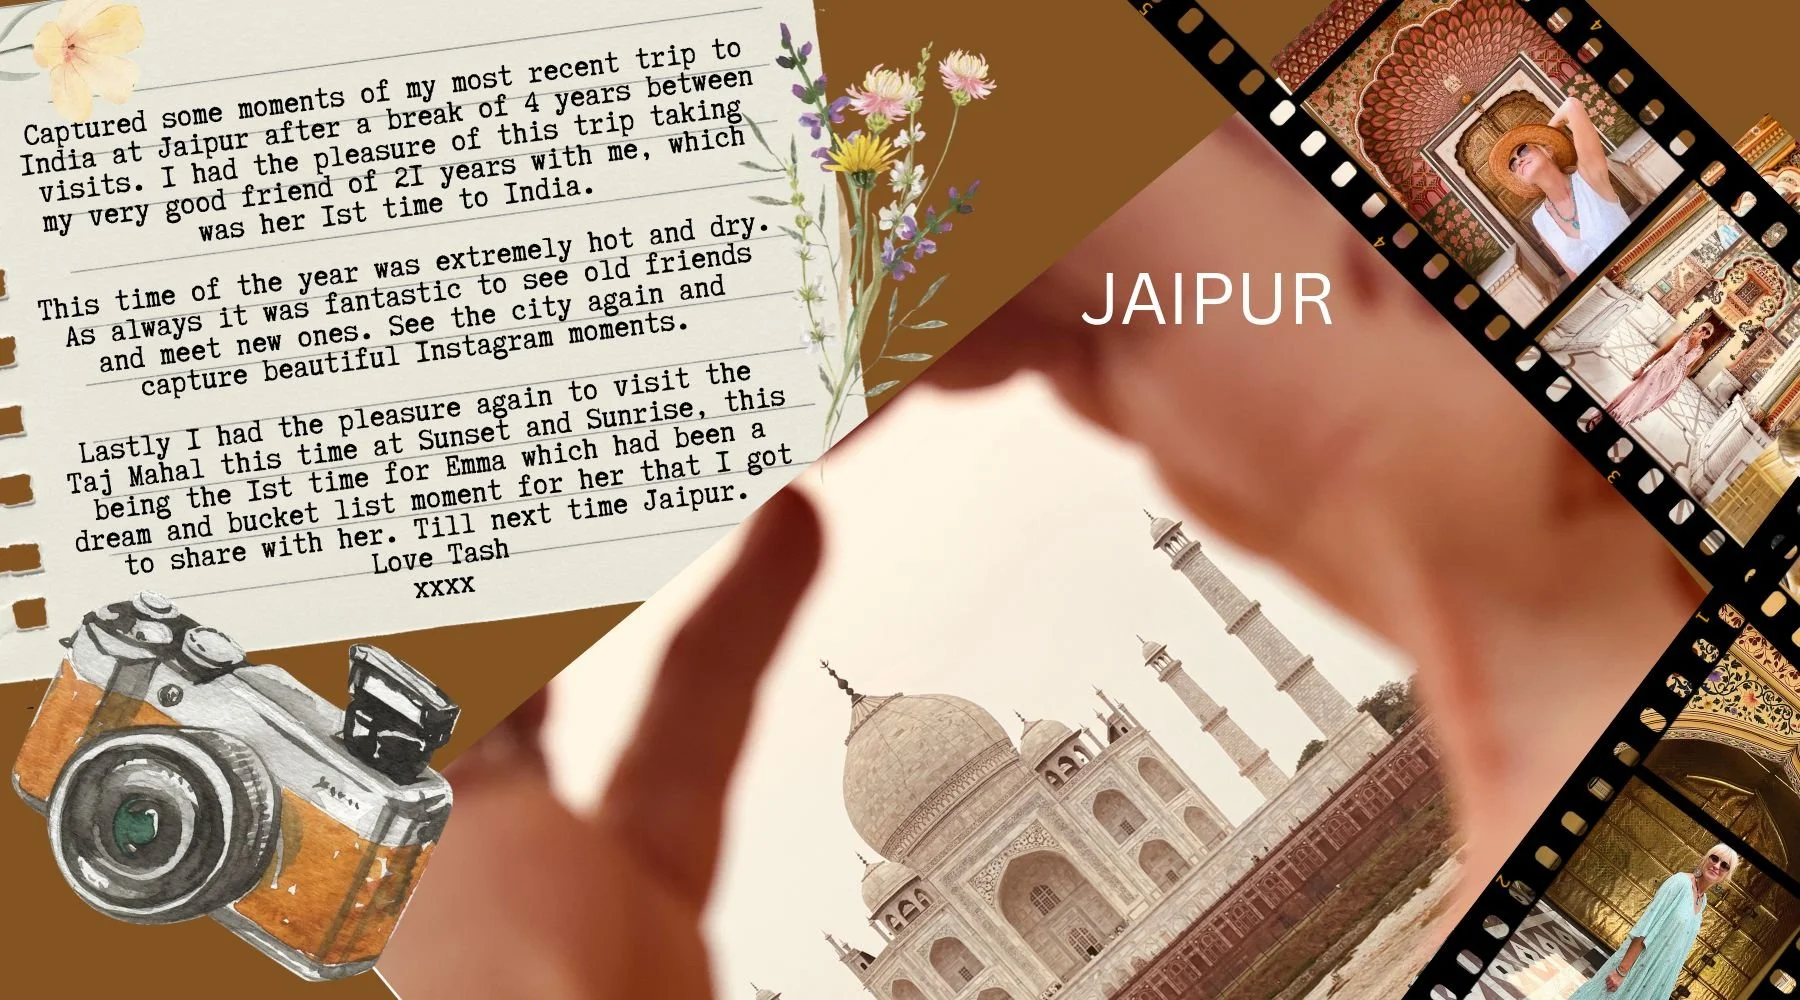 Captured some moments of my most recent trip to
India at Jaipur after a break of 4 years between
visits. I had the pleasure of this trip taking
my very good friend of 2I years with me, which
was her Ist time to India.
This time of the year was extremely hot and dry.
As always it was fantastic to see old friends
and meet new ones. See the city again and
capture beautiful Instagram moments.
Lastly I had the pleasure again to visit the
Taj Mahal this time at Sunset and Sunrise, this
being the Ist time for Emma which had been a
dream and bucket list moment for her that I got
to share with her. Till next time Jaipur.
Love Tash
xxxx
JAIPUR
5
4
4
3
1
2